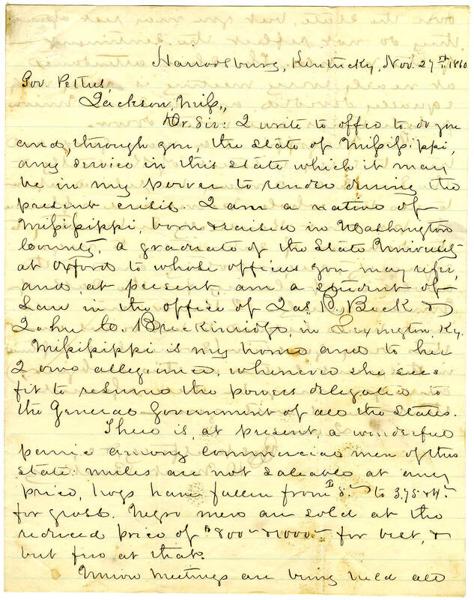 Harrodsburg, Kentucky, Nov. 27th, 1860
Gov. Pettus,
Jackson, Miss.,
Dr. Sir: I write to offer to do you
and, through you, the State of Mississippi,
any service in this state which it may
be in my power to render during the
present crisis. I am a native of
Mississippi, born & raised in Washington
County, a graduate of the State University
at Oxford to whose officers you may refer,
and, at present, am a student of
Law in the office of Jas. B. Beck &
John C. Breckinridge, in Lexington, Ky.
Mississippi is my home and to her
I owe allegiance, whenever she sees
fit to resume the powers delegated to
the General Government of all the States.
There is, at present, a wonderful
panic among commercial men of this
state: mules are not saleable at any
price, hogs have fallen from $8 to 3,75 & 4
for gross. Negro men are sold at the
reduced price of $800 & 1000 for best, &
but few at that.
Union Meetings are being held all